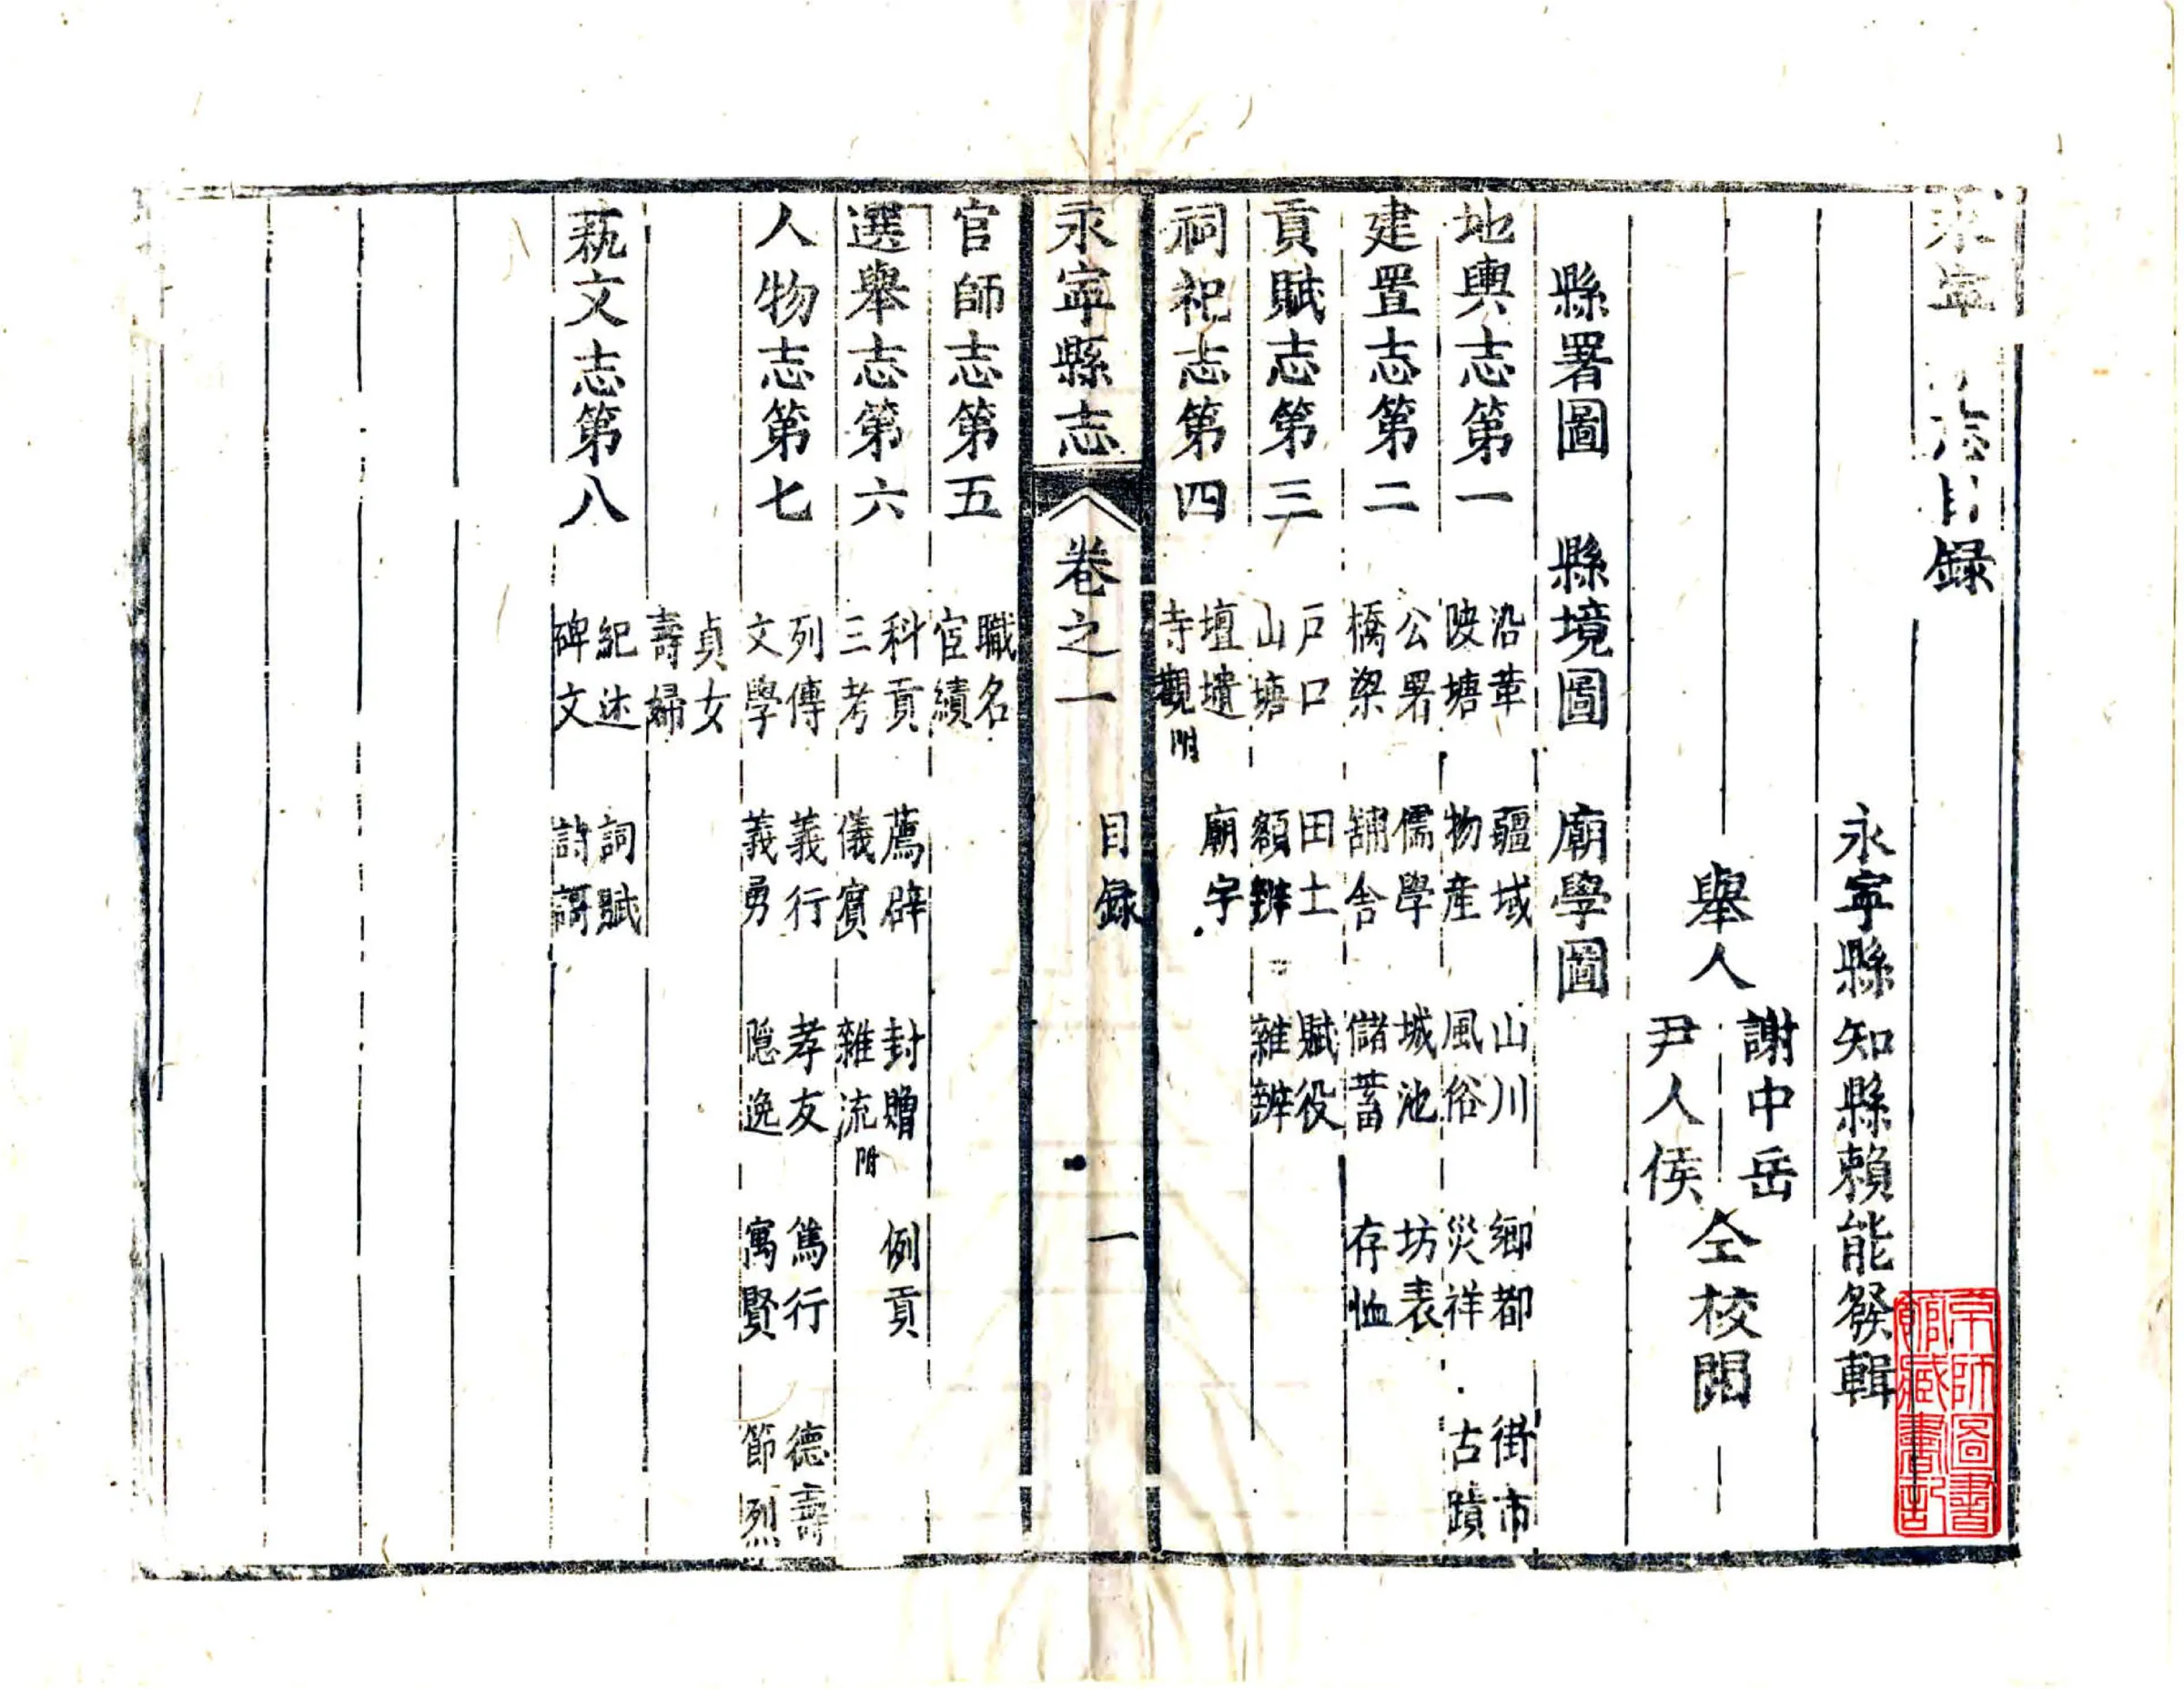 永寧 志目録
永寧縣知縣賴能發輯
舉人 謝中岳 尹人俟 仝校閱
縣署圖 縣境圖 廟學圖
地輿志第一 沿革 疆域 山川 鄉都 街市
陂塘 物産 風俗 災祥 古蹟
建置志第二 公署 儒學 城池 坊表
橋梁 舖舍 儲蓄 存恤
貢賦志第三 戸口 田土 賦役
山塘 額辦 雜辦
祠祀志第四 壇壝 廟宇
寺觀附
永寧縣志 卷之一 目録 一
官師志第五 職名
宦績
選舉志第六 科貢 薦辟 封贈 例貢
三考 儀賓 雜流附
人物志第七 列傳 義行 孝友 篤行 德壽
文學 義勇 隱逸 寓賢 節烈
貞女
壽婦
蓺文志第八 紀述 詞賦
碑文 詩謌
京師圖書
館藏書記